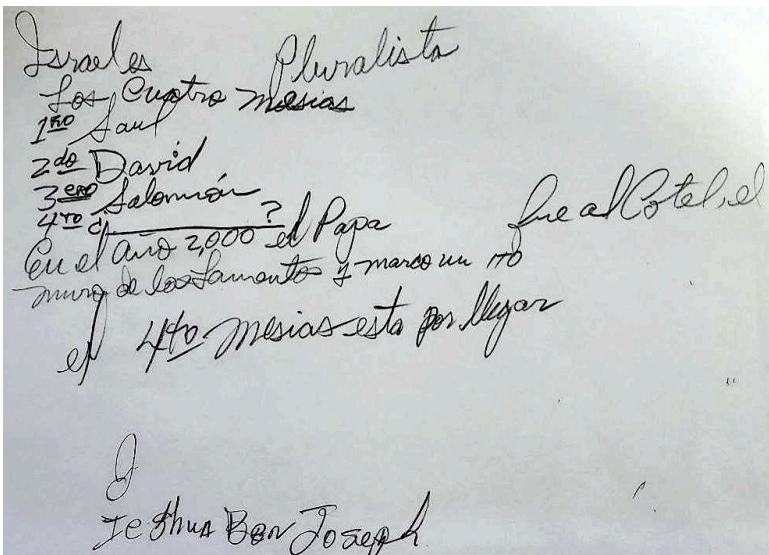 Israel es Pluralista
Los Cuatro mesias
1ro Saul
2do David
3ero Salomón
4to ¿________?
En el año 2,000 el Papa fue al Cotel, el
muro de los Lamentos y marco un ito
el 4to mesias esta por llegar
Ieshua Ben Joseph